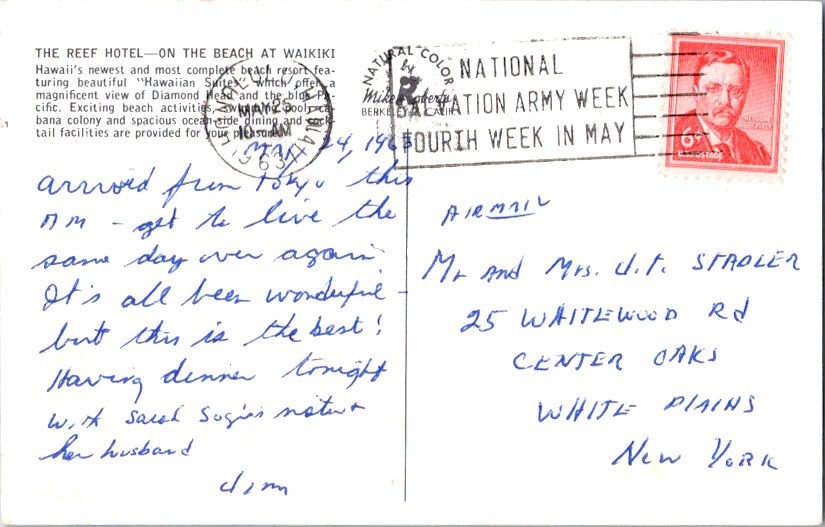 THE REEF HOTEL—ON THE BEACH AT WAIKIKI
Hawaii's newest and most complete beach resort fea-
turing beautiful "Hawaiian Suites" which offer a
magnificent view of Diamond Head and the blue Pa-
cific. Exciting beach activities, swimming pool, ca-
bana colony and spacious ocean-side dining and cock-
tail facilities are provided for your pleasure.
HONOLULU
MAY 25
10 AM
1963
NATURAL COLOR
by
Mike Roberts
BERKELEY, CALIF.
NATIONAL
SALVATION ARMY WEEK
FOURTH WEEK IN MAY
6¢
May 24, 1963
arrived from Tokyo this
AM - get to live the
same day over again
It's all been wonderful -
but this is the best!
Having dinner tonight
with Sarah sister &
her husband
Jim
AIRMAIL
Mr and Mrs. J.F. STADLER
25 WHITEWOOD Rd
CENTER OAKS
WHITE PLAINS
New York